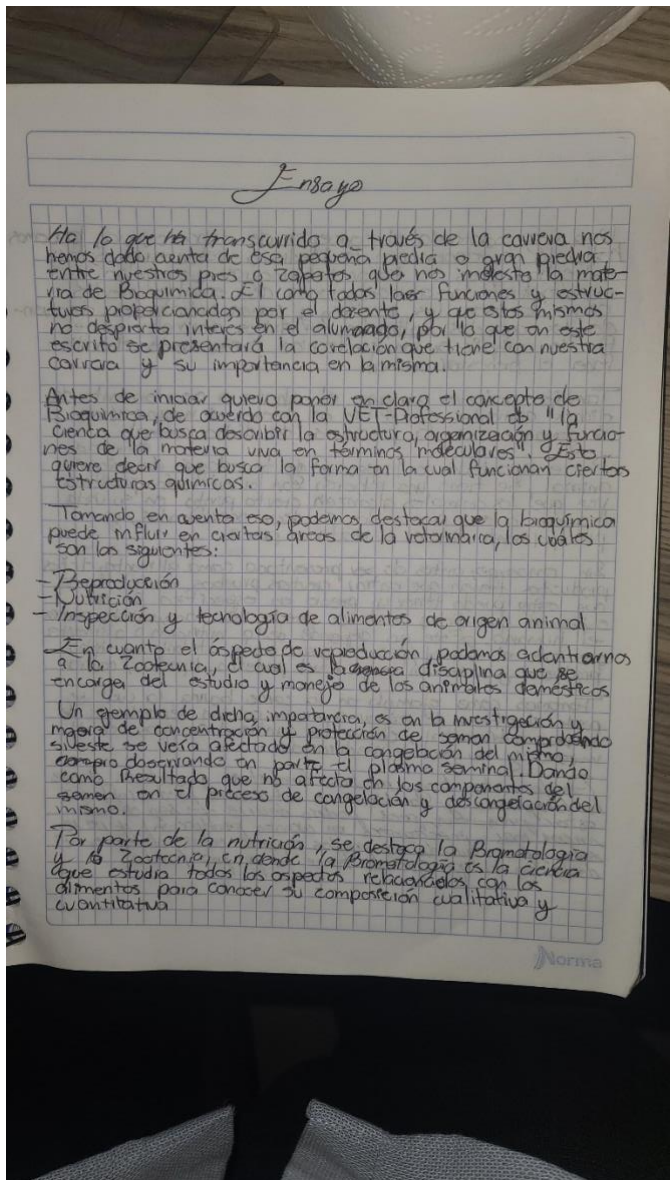 Ensayo
Ha lo que ha transcurrido a través de la carrera nos
hemos dado cuenta de esa pequeña piedia o gran piedra
entre nuestros pies o zapatos que nos molesta la mate-
ria de Bioquímica. El como todas las funciones y estruc-
turas proporcionados por el docente, y que estos mismos
no despierta interes en el alumnado, por lo que en este
escrito se presentará la corelación que tiene con nuestra
carrera y su importancia en la misma.
Antes de iniciar quiero poner en claro el concepto de
Bioquímica, de acuerdo con la VET-Professional es "la
ciencia que busca describir la estructura, organización y funcio-
nes de la materia viva en términos moleculares". Esto
quiere decir que busca la forma en la cual funcionan ciertas
estructuras químicas.
Tomando en cuenta eso, podemos destacar que la bioquímica
puede influir en ciertas áreas de la veterinaria, los cuales
son las siguientes:
- Reproducción
- Nutrición
- Inspección y tecnología de alimentos de origen animal
En cuanto el áspecto de reproducción, podemos adentrarnos
a la Zootecnia, el cual es la disciplina que se
encarga del estudio y manejo de los animales domésticos
Un ejemplo de dicha importancia, es en la investigación y
de concentración y protección de semen comprobando
si este se vera afectado en la congelación del mismo,
observando en parte el plasma seminal. Dando
como Resultado que no afecta en los componentes del
semen en el proceso de congelación y descongelación del
mismo.
Por parte de la nutrición, se destaca la Bromatología
y la Zootecnia, en donde la Bromatología es la ciencia
que estudia todos los aspectos relacionados con los
alimentos para conocer su composición cualitativa y
cuantitativa
Norma